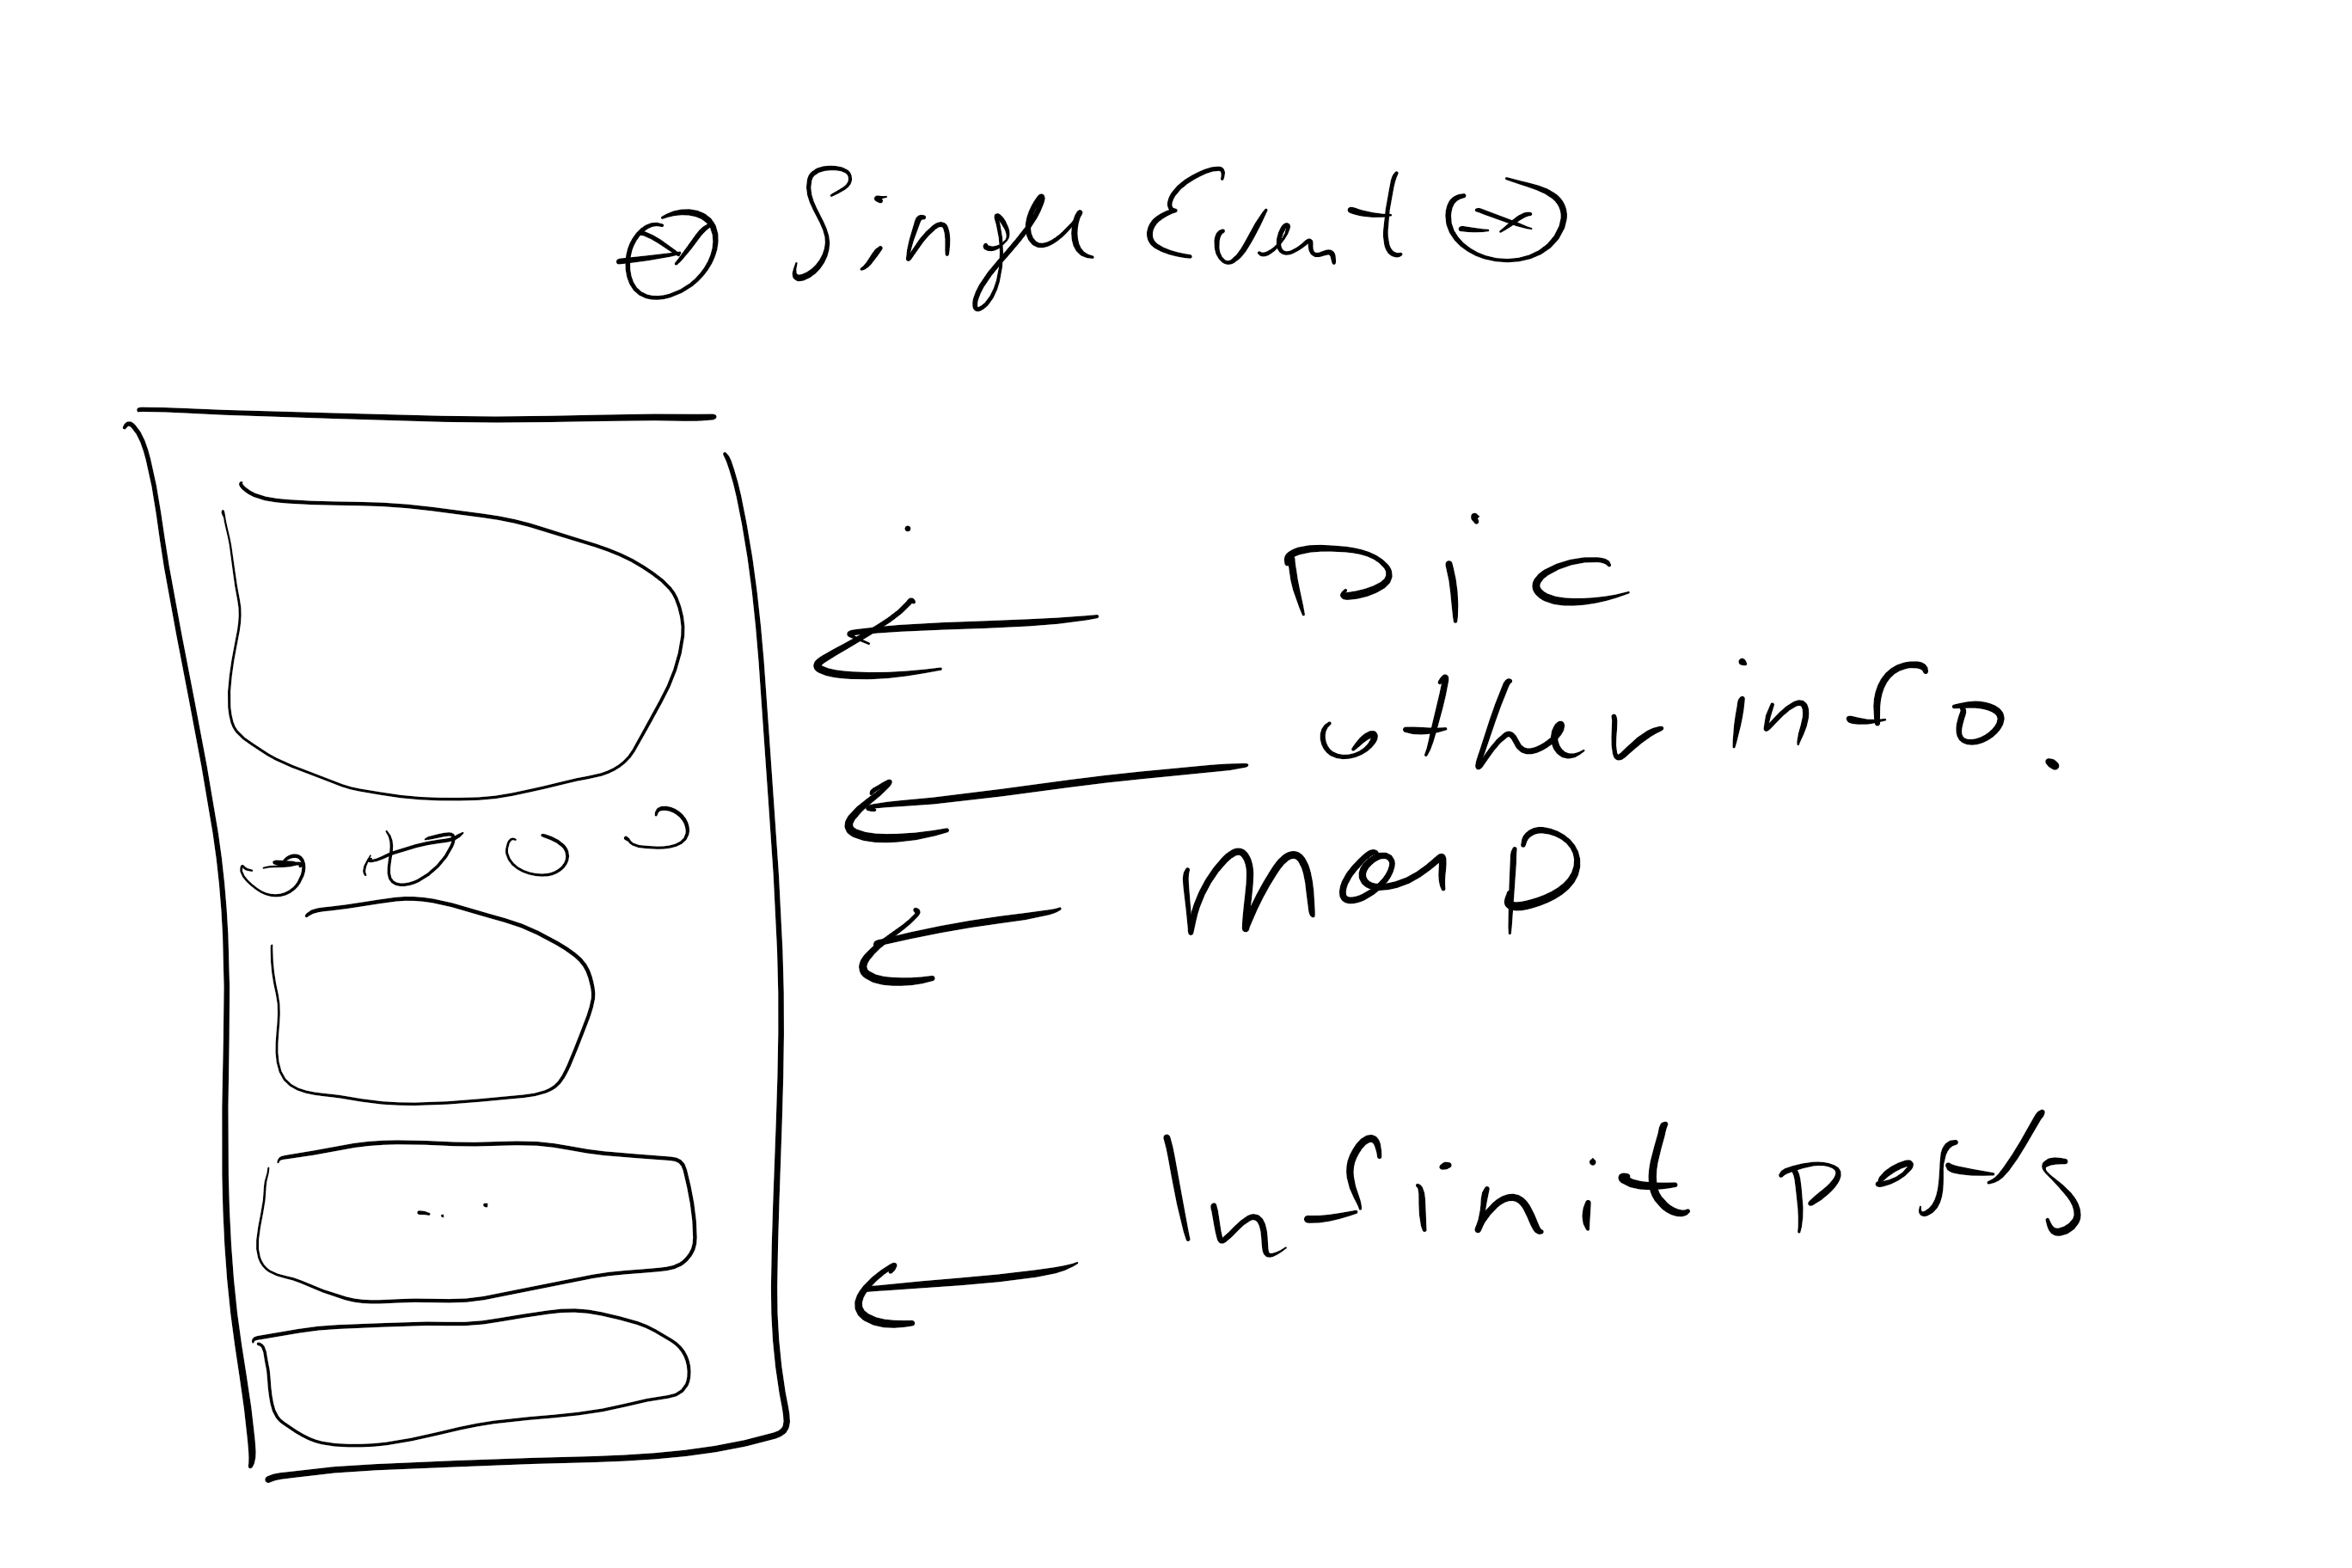 Single Event
Pic
other info.
map
Infinit posts